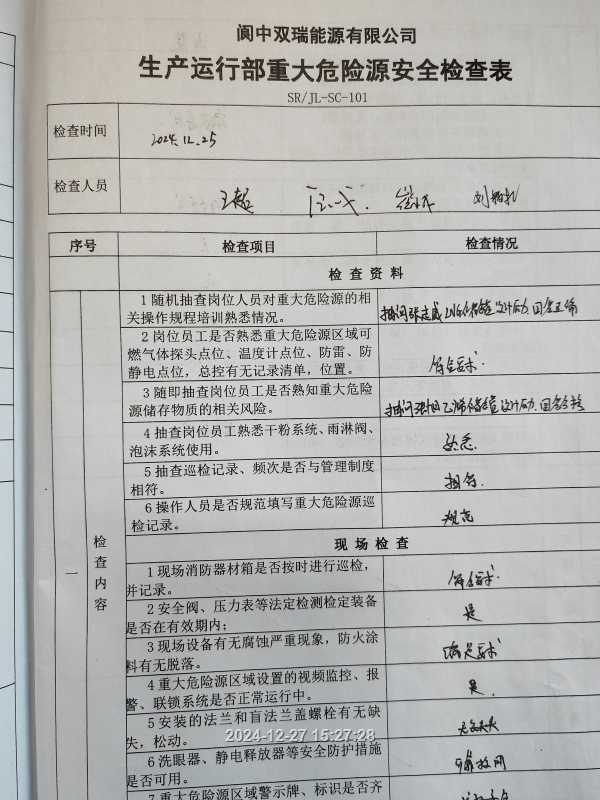 阆中双瑞能源有限公司
生产运行部重大危险源安全检查表
SR/JL-SC-101
检查时间
2024.12.25
检查人员
王超
序号
检查项目
检查情况
检查资料
一
检查内容
1 随机抽查岗位人员对重大危险源的相
关操作规程培训熟悉情况。
2 岗位员工是否熟悉重大危险源区域可
燃气体探头点位、温度计点位、防雷、防
静电点位，总控有无记录清单，位置。
符合要求.
3 随即抽查岗位员工是否熟知重大危险
源储存物质的相关风险。
4 抽查岗位员工熟悉干粉系统、雨淋阀、
泡沫系统使用。
熟悉.
5 抽查巡检记录、频次是否与管理制度
相符。
相符.
6 操作人员是否规范填写重大危险源巡
检记录。
规范
现场检查
1 现场消防器材箱是否按时进行巡检，
并记录。
符合要求.
2 安全阀、压力表等法定检测检定装备
是否在有效期内；
是
3 现场设备有无腐蚀严重现象，防火涂
料有无脱落。
满足要求
4 重大危险源区域设置的视频监控、报
警、联锁系统是否正常运行中。
是.
5 安装的法兰和盲法兰盖螺栓有无缺
失，松动。
无缺失
2024-12-27 15:27:28
6 洗眼器、静电释放器等安全防护措施
是否可用。
7 重大危险源区域警示牌、标识是否齐